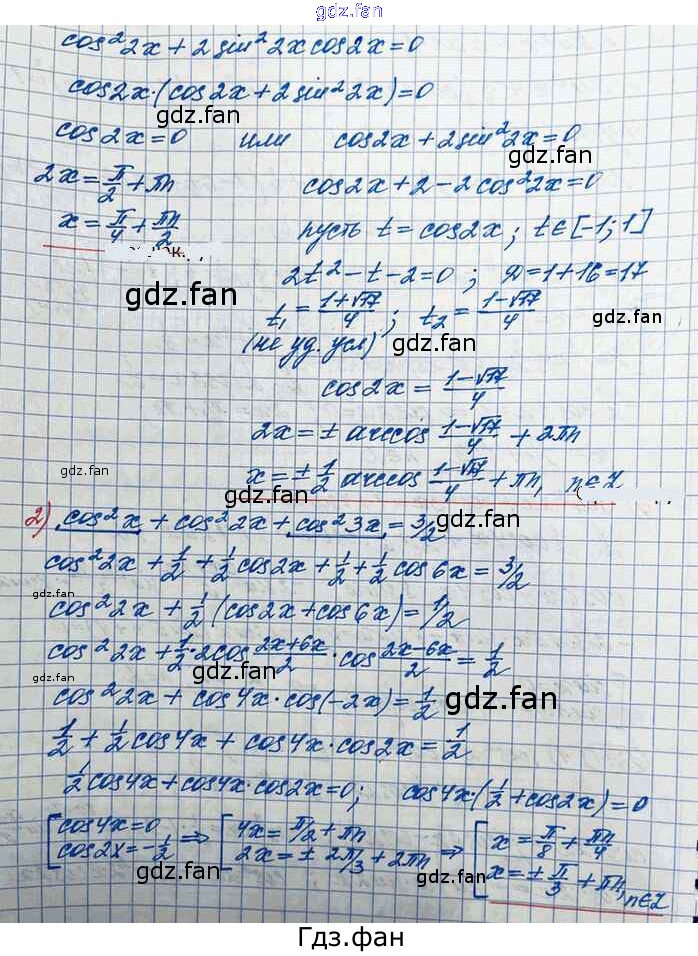 gdz.fan
cos²2x + 2sin²2x cos2x = 0
cos2x·(cos2x + 2sin²2x) = 0
gdz.fan
cos2x = 0 или cos2x + 2sin²2x = 0
gdz.fan
2x = π/2 + πn cos2x + 2 - 2cos²2x = 0
x = π/4 + πn/2 пусть t = cos2x; t ∈ [-1; 1]
gdz.fan
2t² - t - 2 = 0; D = 1 + 16 = 17
gdz.fan
t₁ = (1+√17)/4; t₂ = (1-√17)/4
gdz.fan
(не уд. усл)
gdz.fan
cos2x = (1-√17)/4
2x = ± arccos (1-√17)/4 + 2πn
gdz.fan
x = ± 1/2 arccos (1-√17)/4 + πn, n ∈ Z
gdz.fan
2) cos²x + cos²2x + cos²3x = 3/2
gdz.fan
cos²2x + 1/2 + 1/2 cos2x + 1/2 + 1/2 cos6x = 3/2
gdz.fan
gdz.fan
cos²2x + 1/2 (cos2x + cos6x) = 1/2
cos²2x + 1/2·2cos (2x+6x)/2 · cos (2x-6x)/2 = 1/2
gdz.fan
gdz.fan
cos²2x + cos4x·cos(-2x) = 1/2
gdz.fan
1/2 + 1/2 cos4x + cos4x·cos2x = 1/2
gdz.fan
1/2 cos4x + cos4x·cos2x = 0; cos4x·(1/2 + cos2x) = 0
gdz.fan
[cos4x = 0 ⇒ [4x = π/2 + πn ⇒ [x = π/8 + πn/4
cos2x = -1/2 2x = ± 2π/3 + 2πn x = ± π/3 + πn, n∈Z
gdz.fan
gdz.fan
gdz.fan
Гдз.фан